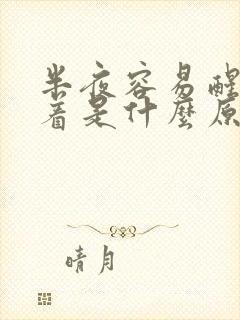 半夜容易醒
着是什麼原
晴月